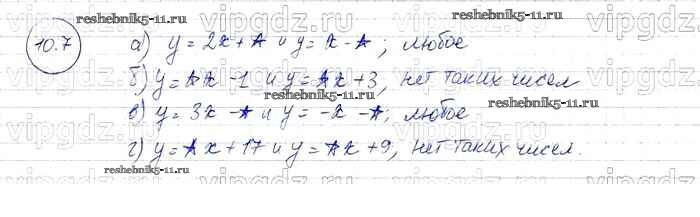 reshebnik5-11.ru
10.7 а) y = 2x + * и y = x - *; любое
б) y = *x - 1 и y = *x + 3, нет таких чисел
reshebnik5-11.ru
reshebnik5-11.ru
в) y = 3x - * и y = -x - *; любое
г) y = *x + 17 и y = *x + 9, нет таких чисел.
reshebnik5-11.ru
vipgdz.ru